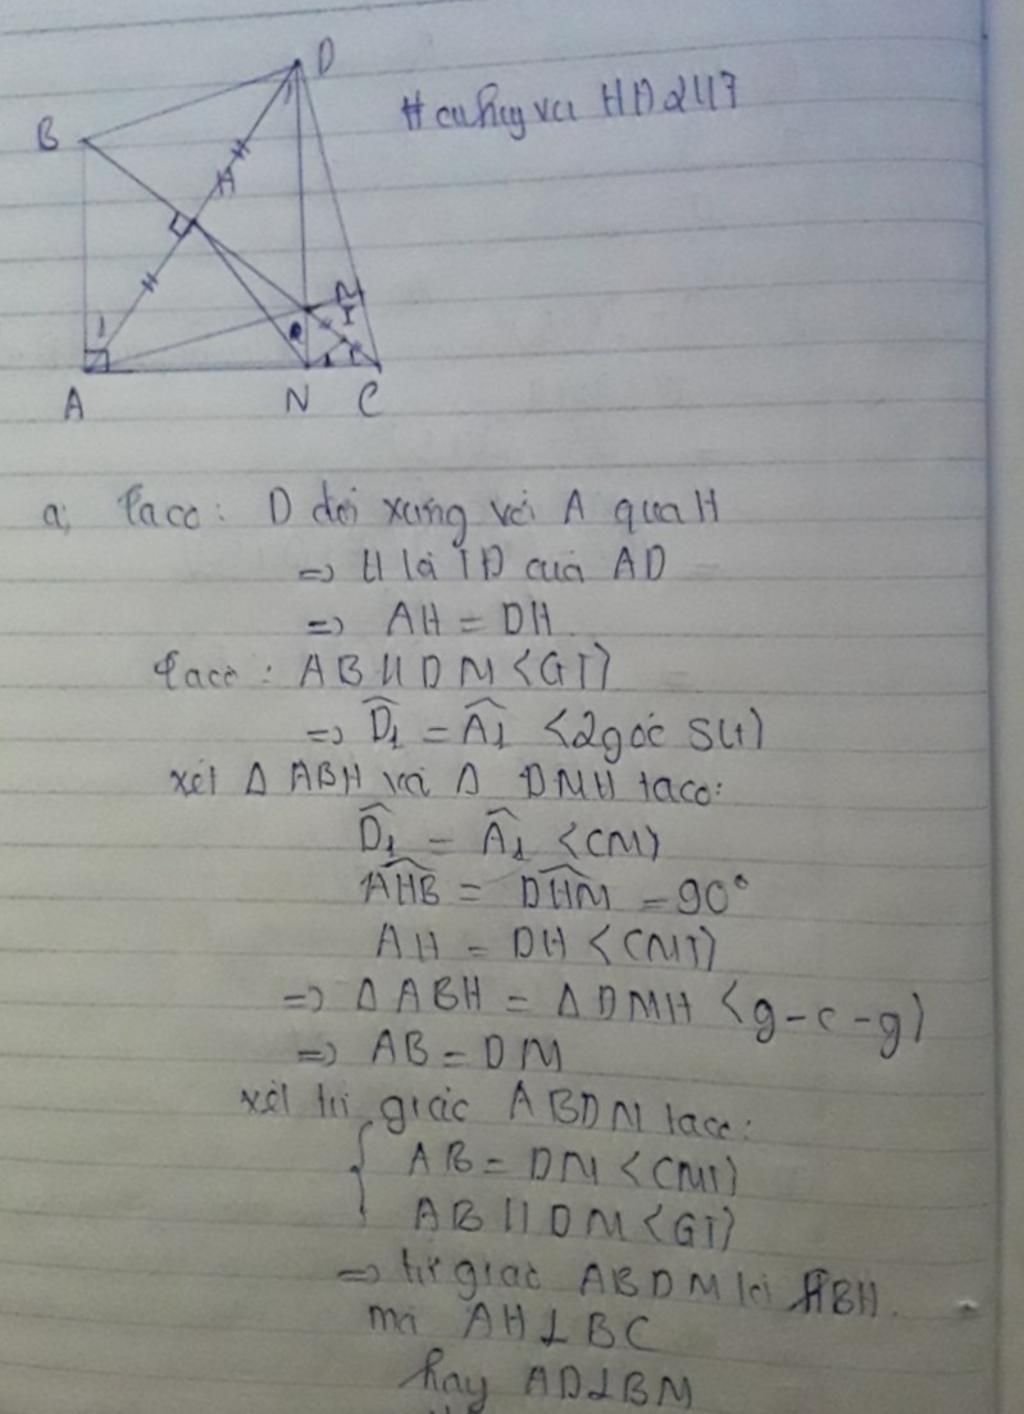 D
# cuhuy vci HD2417
B
H
A
N
C
I
a, Ta co: D đối xứng với A qua H
=> H là TĐ của AD
=> AH = DH
Ta co: AB // DM <GT>
=> D̂1 = Â1 <2 góc SLT>
xét Δ ABH và Δ DMH ta co:
D̂1 = Â1 <CM>
AHB = DHM = 90°
AH = DH <CMT>
=> Δ ABH = Δ DMH <g-c-g>
=> AB = DM
xét tứ giác ABDM ta co:
{ AB = DM <CMT>
AB // DM <GT>
=> tứ giác ABDM là HBH.
mà AH ⊥ BC
hay AD ⊥ BM